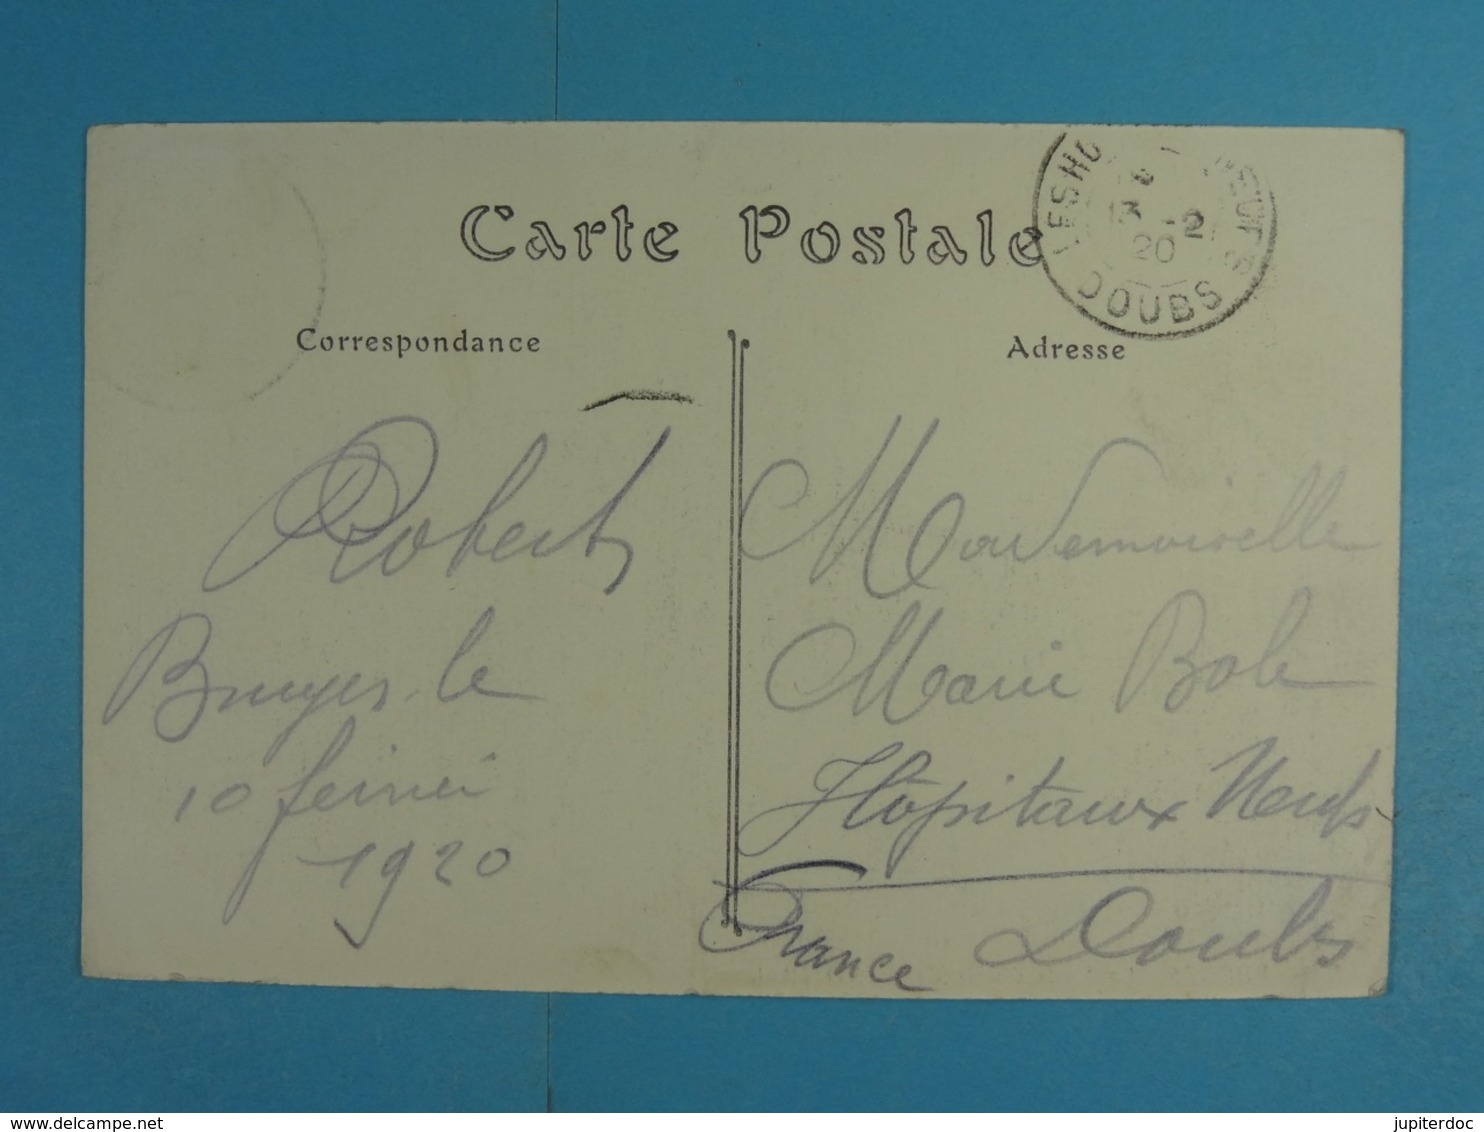 Carte Postale
Correspondance
Adresse
Robert
Bruges le
10 février
1920
Mademoiselle
Marie Bole
Hôpitaux Neufs
Doubs
France
13 -2
20
DOUBS
www.delcampe.net
jupiterdoc